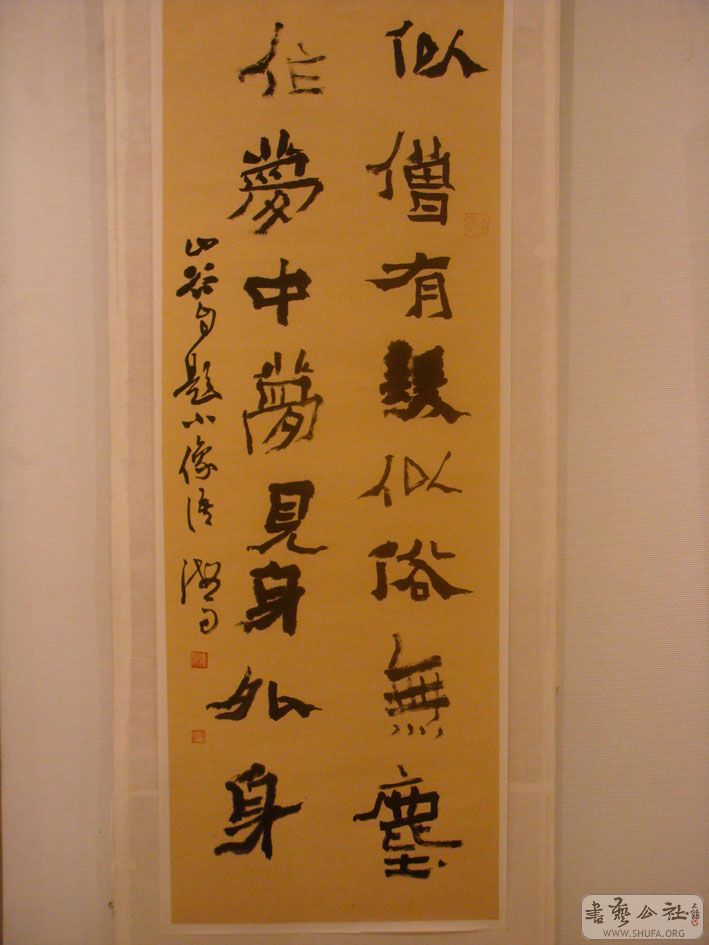 似僧有髮似俗無塵
作夢中夢見身外身
山谷自題小像語
書藝公社
WWW.SHUFA.ORG